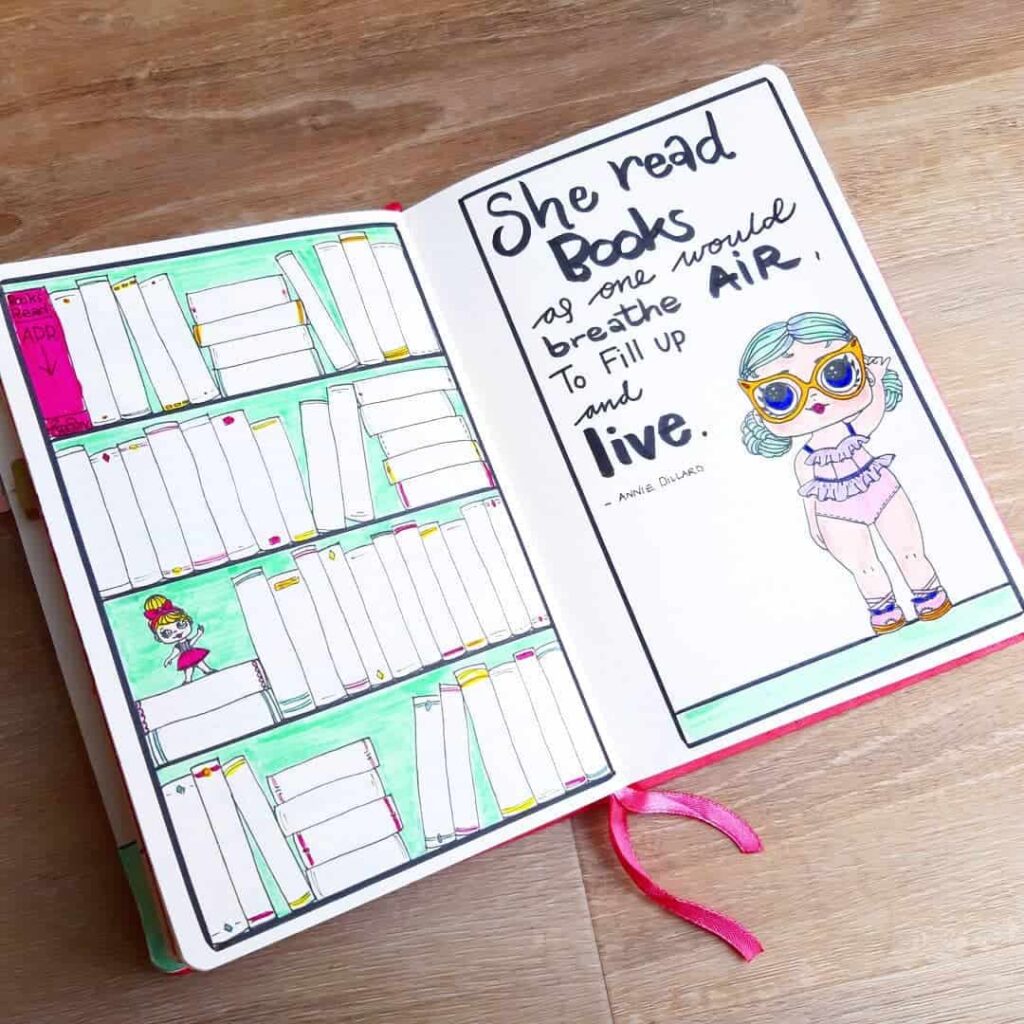 Books
Read
APR
She read
Books
as one would
breathe AiR,
To Fill up
and
live.
- ANNIE DILLARD